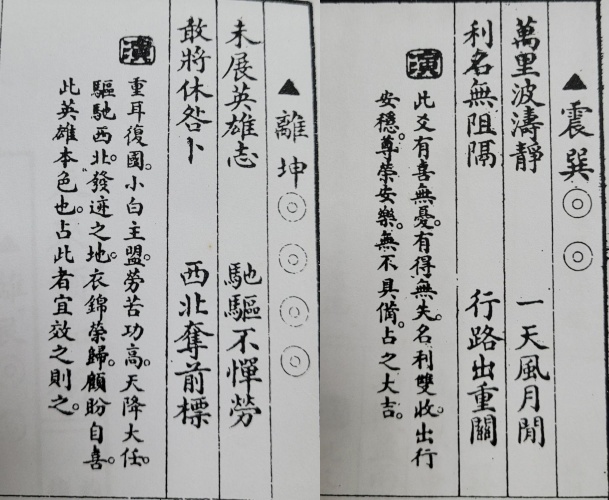 ▲震巽◎◎
萬里波濤靜　一天風月閒
利名無阻隔　行路出重關
演
此爻有喜無憂。有得無失。名利雙收。出行
安穩。尊榮安樂。無不具備。占之大吉。
▲離坤◎◎◎◎
未展英雄志　馳驅不憚勞
敢將休咎卜　西北奪前標
演
重耳復國。小白主盟。勞苦功高。天降大任。
驅馳西北。發迹之地。衣錦榮歸。顧盼自喜。
此英雄本色也。占此者宜效之則之。